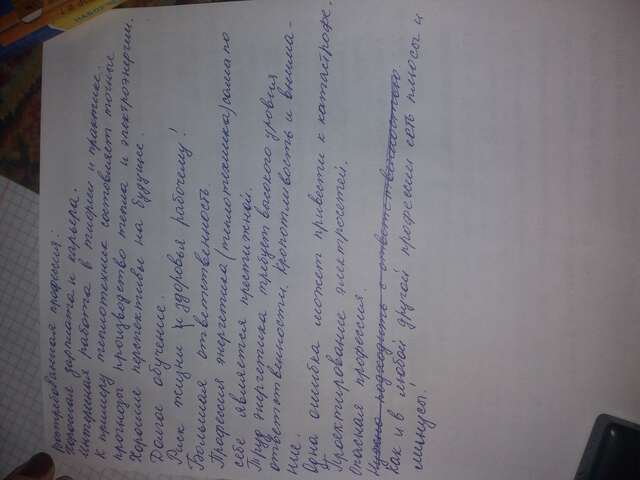 востребованная профессия:
Хорошая зарплата и карьера.
Интересная работа в теории и практике.
К примеру теплотехник составляет точные
прогнозы производство тепла и электроэнергии.
Хорошие перспективы на будущее.
Долгое обучение.
Риск жизни и здоровья рабочему!
Большая ответственность.
Профессия энергетика (теплотехника) сама по
себе является престижной.
Труд энергетика требует высокого уровня
ответственности. Кропотливость и внима-
ние.
Одна ошибка может привести к катастрофе.
Проектирование электросетей.
Опасная профессия.
Нужно подходить с ответственностью
Как и в любой другой профессии есть плюсы и
минусы!